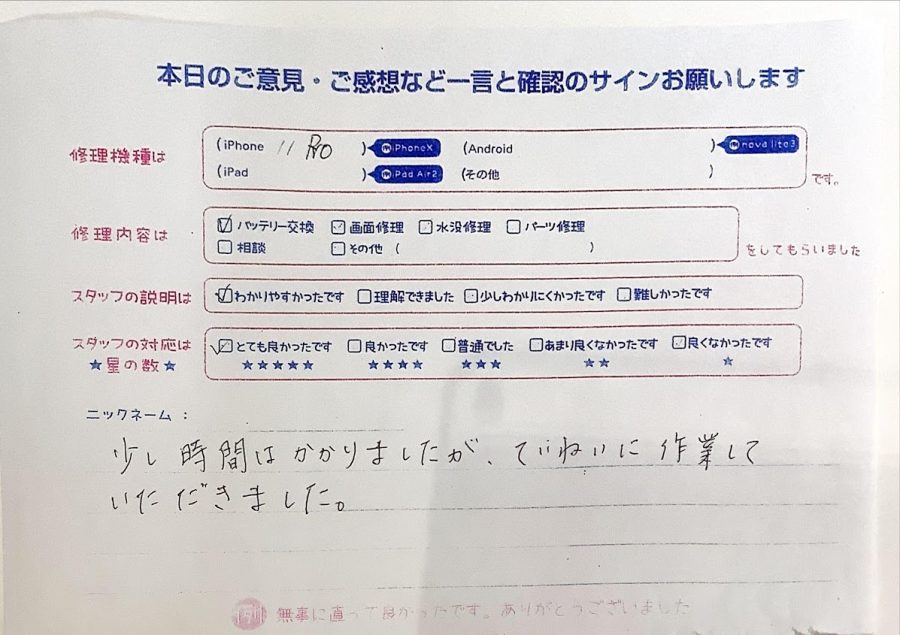 本日のご意見・ご感想など一言と確認のサインお願いします
修理機種は
(iPhone 11 Pro ) iPhoneX (Android ) nova lite3
(iPad ) iPad Air2 (その他 )
です。
修理内容は
バッテリー交換 画面修理 水没修理 パーツ修理
相談 その他 ( )
をしてもらいました
スタッフの説明は わかりやすかったです 理解できました 少しわかりにくかったです 難しかったです
スタッフの対応は とても良かったです 良かったです 普通でした あまり良くなかったです 良くなかったです
★星の数★ ★★★★★ ★★★★ ★★★ ★★ ★
ニックネーム :
少し時間はかかりましたが、ていねいに作業して
いただきました。
無事に直って良かったです。ありがとうございました